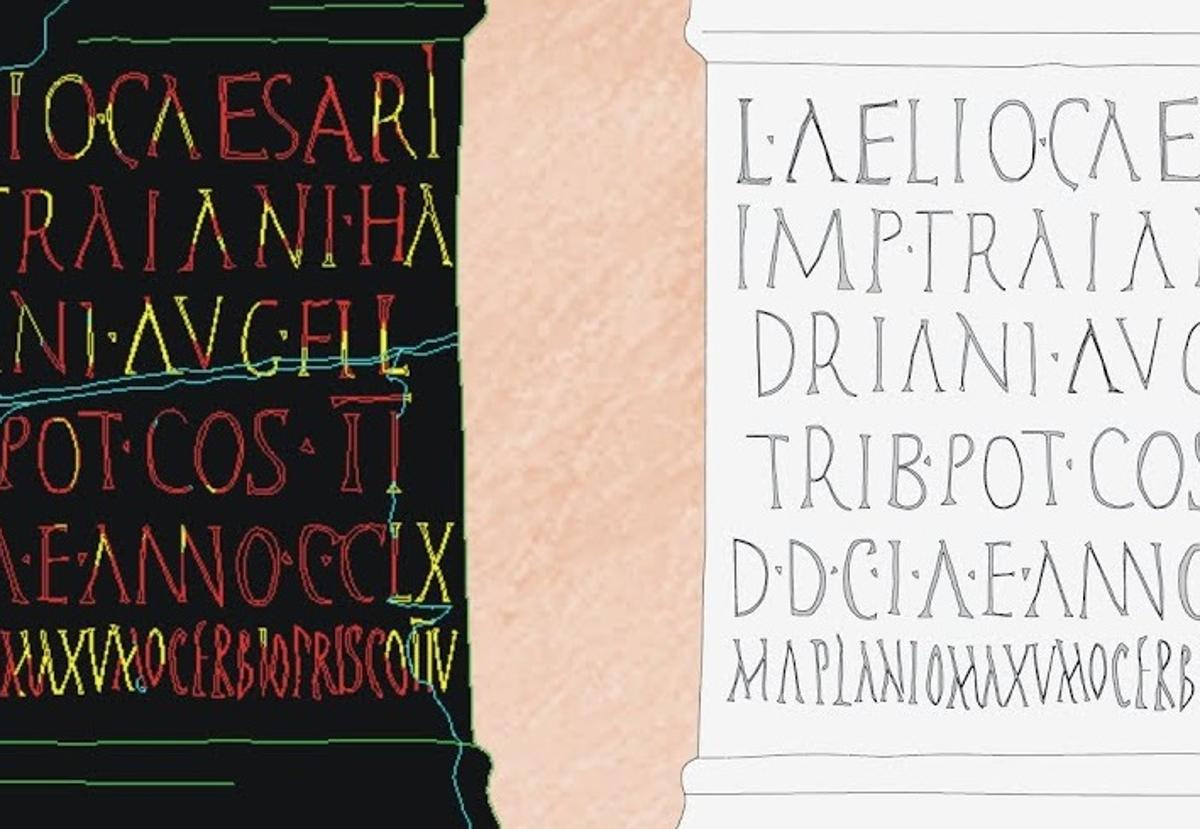 IO·CAESARI
TRAIANI·HA
NI·AVG·FIL
POT·COS·II
A·E·ANNO·C·CLX
MAXVMOCERBIOPRISCOIIV
L·AELIO·CAE
IMP·TRAIA
DRIANI·AVG
TRIB·POT·COS
D·D·C·I·A·E·ANNO
MAPLANIOMAXVMOCERB